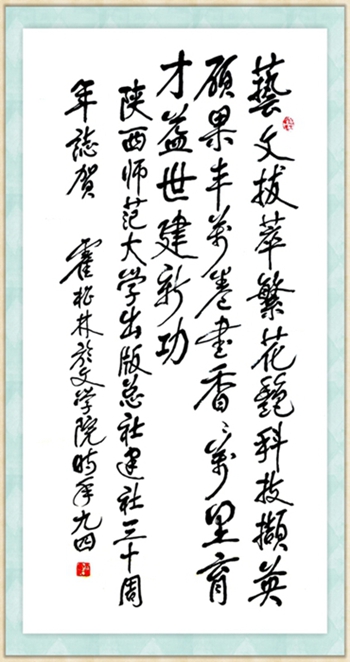 藝文拔萃繁花艷科技擷英
碩果丰萬卷書香々萬里育
才益世建新功
陕西师范大学出版总社建社三十周
年誌賀 霍松林於文学院時年九四